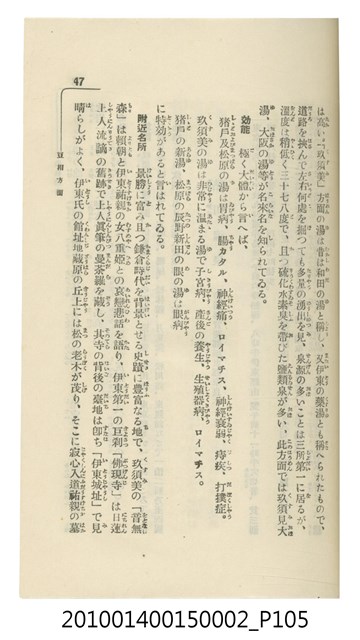 は高い。「玖須美」方面の湯は昔は和田の湯と稱し、又伊東の藥湯とも稱へられたもので、
道路を挾んで左右何處を掘つても多量の湧出を見、泉源の多いことは三所第一に居るが、
溫度は稍低く三十七八度で、且つ硫化水素臭を帶びた鹽類泉が多い、此方面では玖須見大
湯、大阪の湯等が名来名を知られてゐる。
効能 極く大體から言へば、
猪戸及松原の湯は胃病、腸カタル、神經痛、ロイマチス、神經衰弱、痔疾、打撲症。
玖須美の湯は非常に温まる湯で子宮病、產後の養生、生殖器病、ロイマチス。
猪戸の新湯、松原の辰野新田の眼の湯は眼病
に特効があると言はれてゐる。
附近名所 景勝に富み且つ鎌倉時代を背景とせる史蹟に豊富なる地で、玖須美の「音無
森」は賴朝と伊東祐親の女八重姫との哀戀悲話を語り、伊東第一の巨刹「佛現寺」は日蓮
上人流謫の舊跡で上人眞筆の曼荼羅を藏し、其寺の背後の臺地は卽ち「伊東城址」で見
晴らしがよく、伊東氏の館址地蔵原の丘上には松の老木が茂り、そこに寂心入道祐親の墓
豆相方面
47
201001400150002_P105